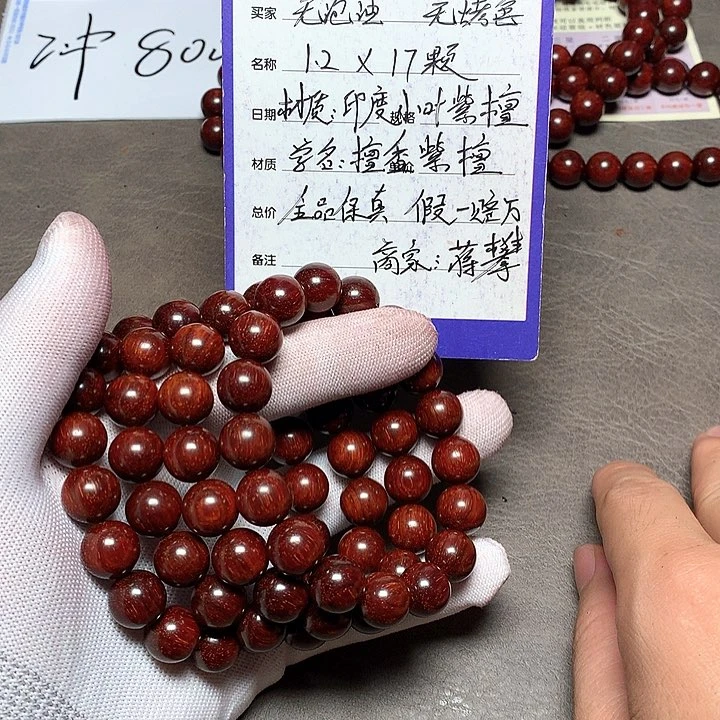 冲 80
买家 无泡油 无烤色
名称 1.2 X 17颗
日期 材质:印度小叶紫檀
规格
材质 学名:檀香紫檀
单价
总价 全品保真 假一赔万
备注 商家:蒋攀